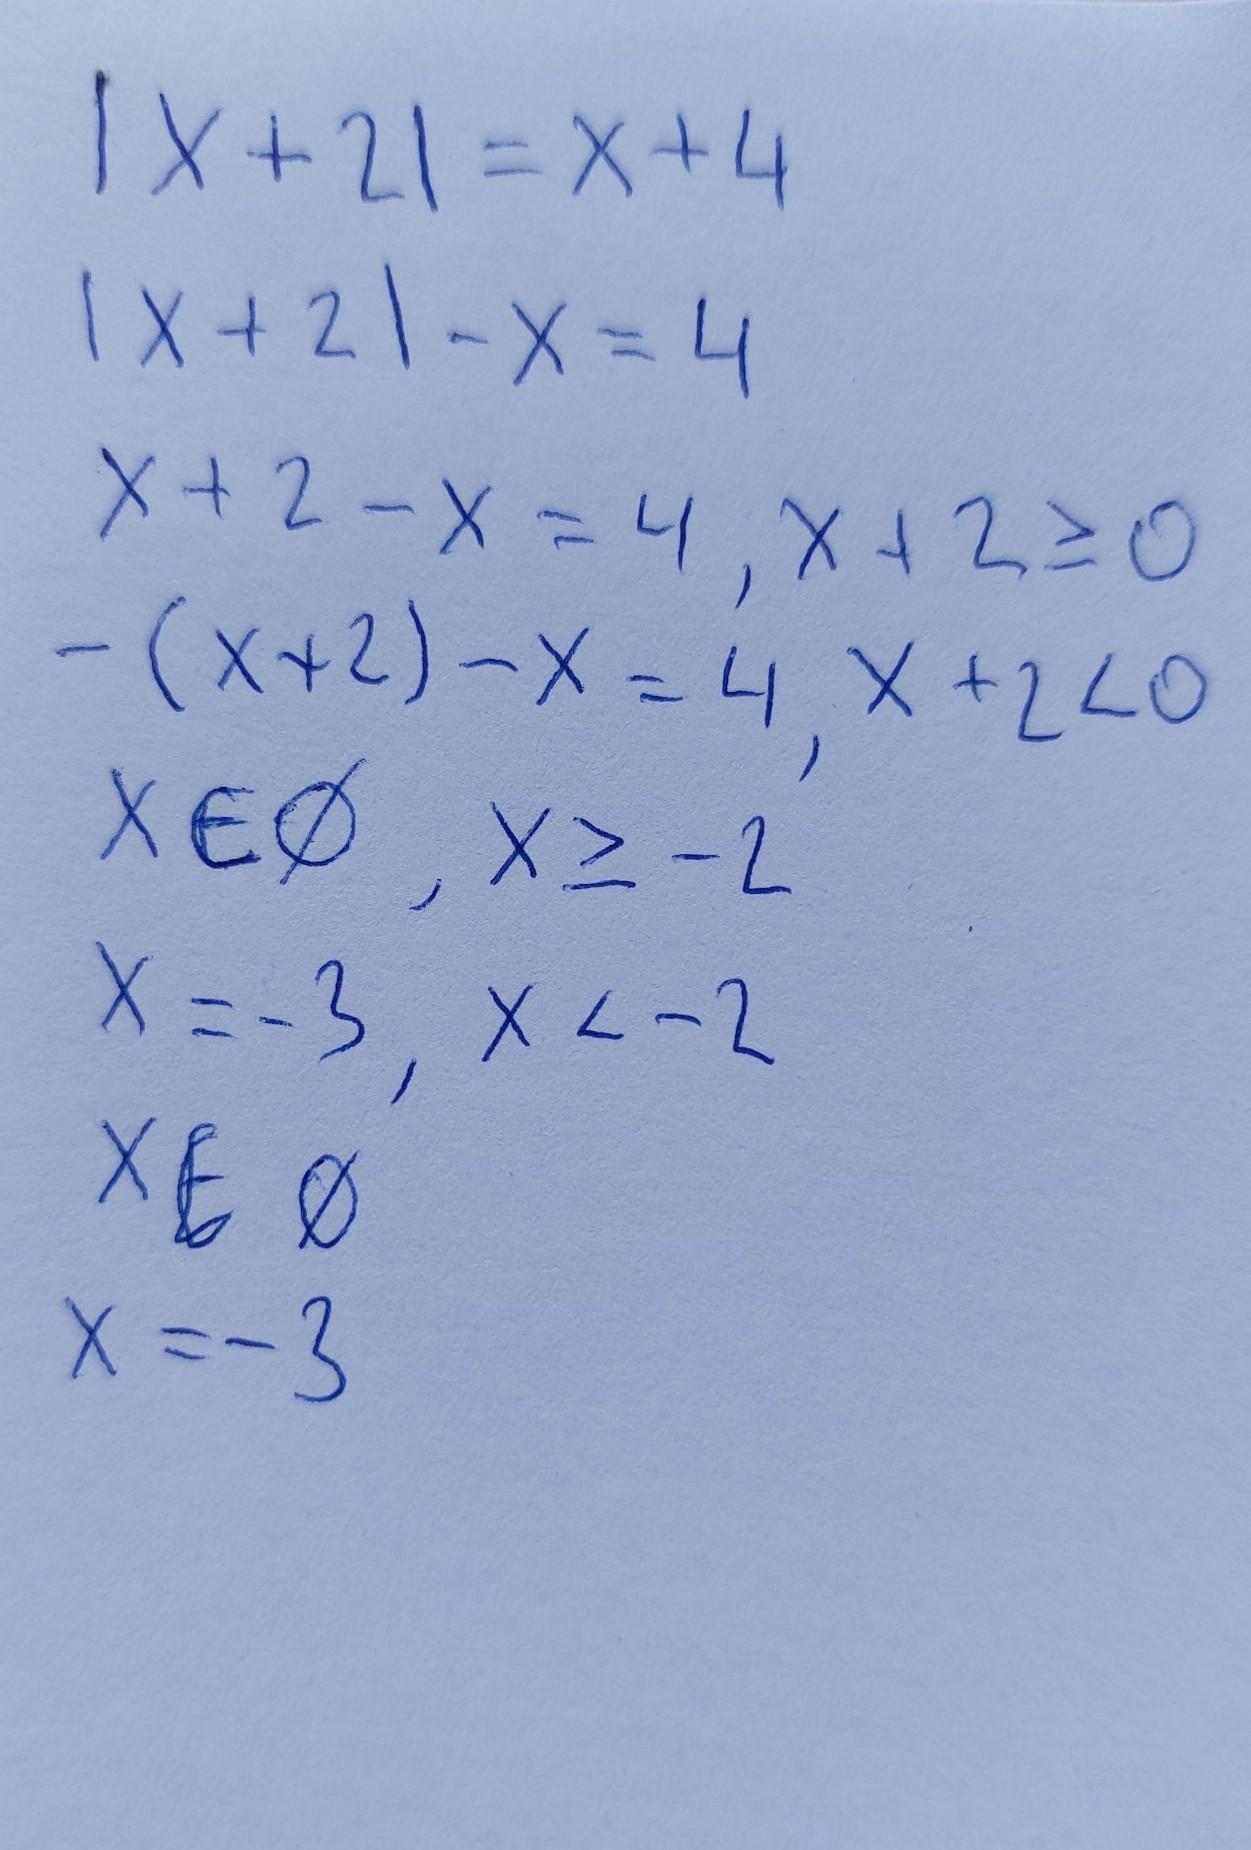 |x+2|=x+4
|x+2|-x=4
x+2-x=4, x+2≥0
-(x+2)-x=4, x+2<0
x∈∅, x≥-2
x=-3, x<-2
x∈∅
x=-3